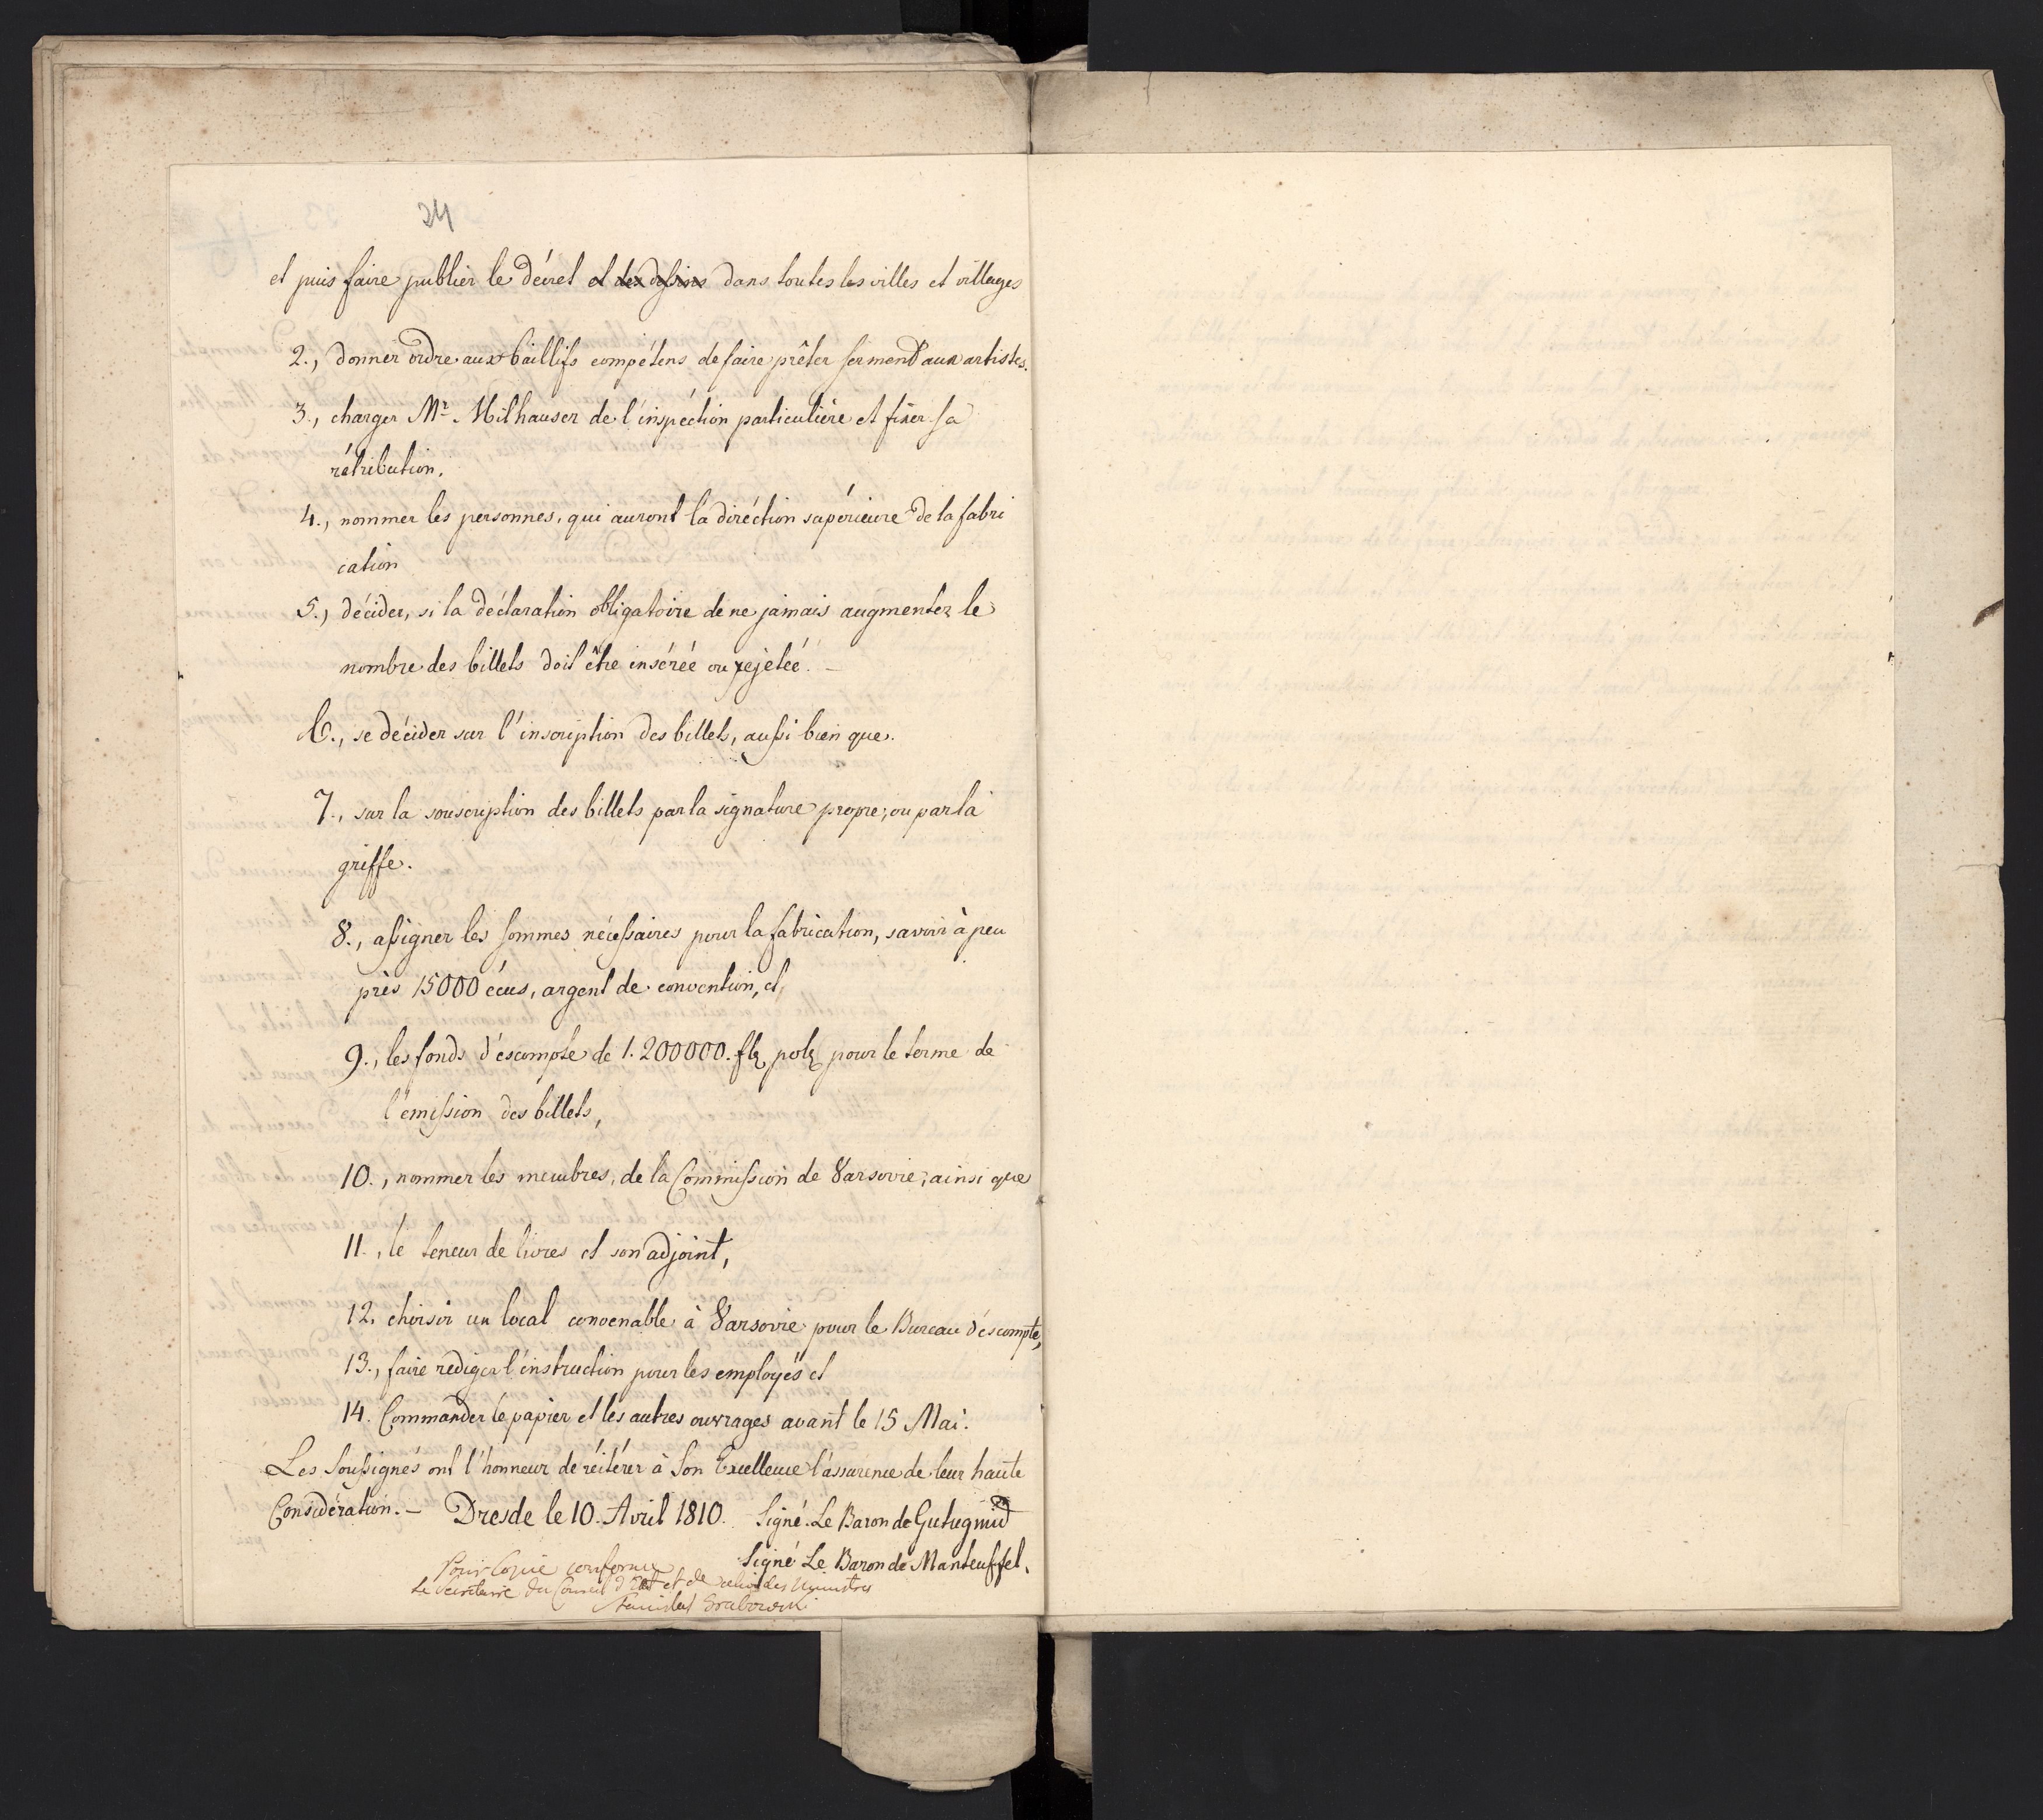 24
et puis faire publier le décret et des dessins dans toutes les villes et villages
2., donner ordre aux baillifs compétens de faire prêter serment aux artistes.
3., charger Mr. Milhauser de l'inspéction particulière et fixer sa
rétribution.
4., nommer les personnes, qui auront la diréction supérieure de la fabri
cation
5., décider, si la déclaration obligatoire de ne jamais augmenter le
nombre des billets doit être insérée ou rejetée. —
6., se décider sur l'inscription des billets, aussi bien que
7., sur la souscription des billets par la signature propre, ou par la
griffe.
8., assigner les sommes nécessaires pour la fabrication, savoir à peu
près 15000 écus, argent de convention, et,
9., les fonds d'escompte de 1.200000. fls pols pour le terme de
l'émission des billets,
10., nommer les membres, de la Commission de Varsovie, ainsi que
11., le teneur de livres et son adjoint,
12. choisir un local convenable à Varsovie pour le Bureau d'éscompte,
13., faire rediger l'instruction pour les employés et
14. Commander le papier et les autres ouvrages avant le 15 Mai.
Les Soussignés ont l'honneur de réitérer à Son Excellence l'assurence de leur haute
Considération. — Dresde le 10. Avril 1810. Signé. Le Baron de Gutugmid
Signé Le Baron de Manteuffel.
Pour Copie conforme
Le Secretaire du Conseil d'Etat et de celui des Ministres
Stanislas Grabowski